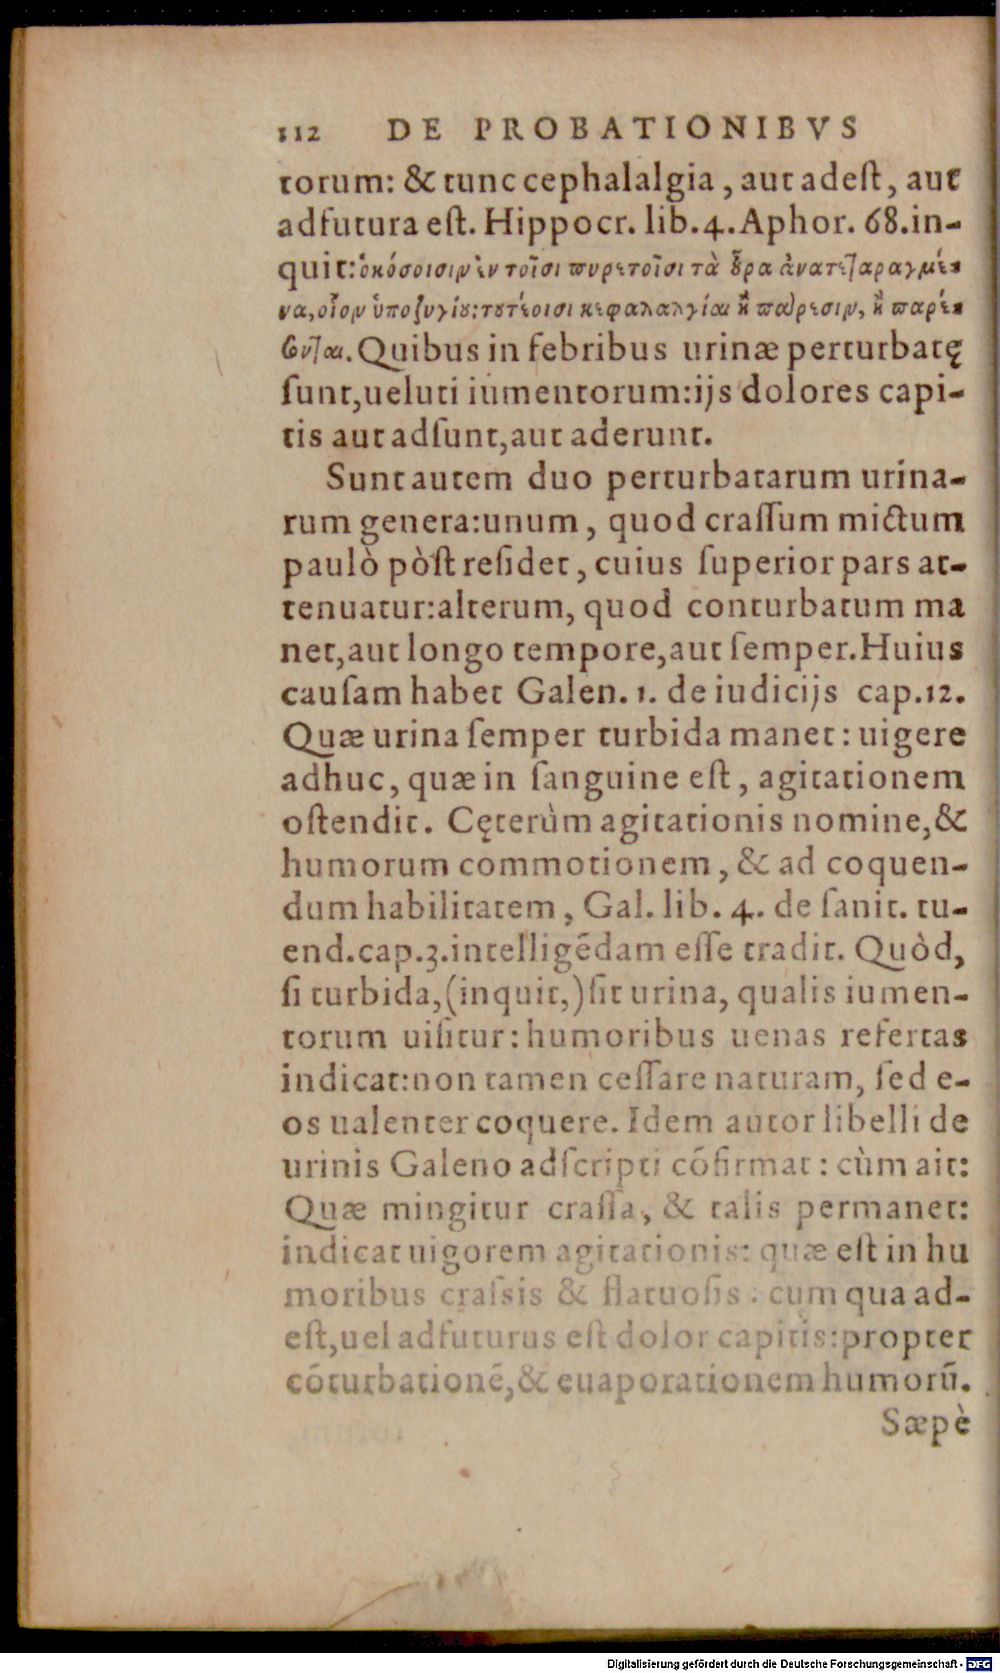 112 DE PROBATIONIBVS
torum: & tunc cephalalgia, aut adeſt, aut
adfutura eſt. Hippocr. lib. 4. Aphor. 68. in-
quit: ὁκόσοισιν ἐν τοῖσι πυρετοῖσι τὰ ȣ̃ρα ἀνατεταραγμέ-
να, οἷον ὑποζυγίȣ: τȣτέοισι κεφαλαλγίαι ἢ πάρεισιν, ἢ παρέ-
σονται. Quibus in febribus urinæ perturbatę
ſunt, ueluti iumentorum: ijs dolores capi-
tis aut adſunt, aut aderunt.
Sunt autem duo perturbatarum urina-
rum genera: unum, quod craſſum mictum
paulò pòſt reſidet, cuius ſuperior pars at-
tenuatur: alterum, quod conturbatum ma
net, aut longo tempore, aut ſemper. Huius
cauſam habet Galen. 1. de iudicijs cap. 12.
Quæ urina ſemper turbida manet: uigere
adhuc, quæ in ſanguine eſt, agitationem
oſtendit. Cęterùm agitationis nomine, &
humorum commotionem, & ad coquen-
dum habilitatem, Gal. lib. 4. de ſanit. tu-
end. cap. 3. intelligẽdam eſſe tradit. Quòd,
ſi turbida, (inquit,) ſit urina, qualis iumen-
torum uiſitur: humoribus uenas refertas
indicat: non tamen ceſſare naturam, ſed e-
os ualenter coquere. Idem autor libelli de
urinis Galeno adſcripti cõfirmat: cùm ait:
Quæ mingitur craſſa, & talis permanet:
indicat uigorem agitationis: quæ eſt in hu
moribus craſsis & flatuoſis: cum qua ad-
eſt, uel adfuturus eſt dolor capitis: propter
cõturbationẽ, & euaporationem humorũ.
Sæpè
Digitalisierung gefördert durch die Deutsche Forschungsgemeinschaft - DFG